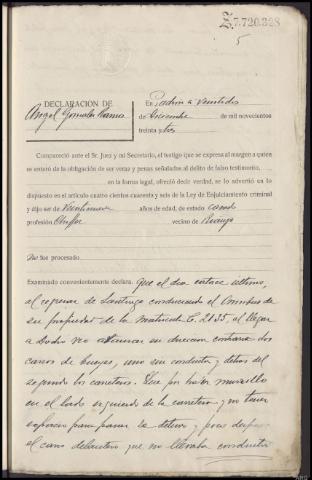 7.720.328
5
DECLARACIÓN DE
Angel Gonzalez Ramos
En Padrón a veintidos
de Diciembre de mil novecientos
treinta y tres
Compareció ante el Sr. Juez y mi Secretario, el testigo que se expresa al margen a quien
se enteró de la obligación de ser veraz y penas señaladas al delito de falso testimonio,
en la forma legal, ofreció decir verdad, se lo advertió en lo
dispuesto en el artículo cuatro cientos cuarenta y seis de la Ley de Enjuiciamiento criminal
y dijo ser de veintinueve años de edad, de estado casado
profesión Chofer vecino de
No fue procesado
Examinado convenientemente declara. Que el dia catorce último,
al regresar de Santiago conduciendo el Omnibus de
su propiedad de la matricula C. 2135, al llegar
a vio avanzar en direccion contraria dos
carros de bueyes, uno sin conductor y detras del
segundo los carreteros. Que por haber murallo
en el lado izquierdo de la carretera y no tener
espacio para pasar se detuvo y poco despues
el carro delantero que no llevaba conductor